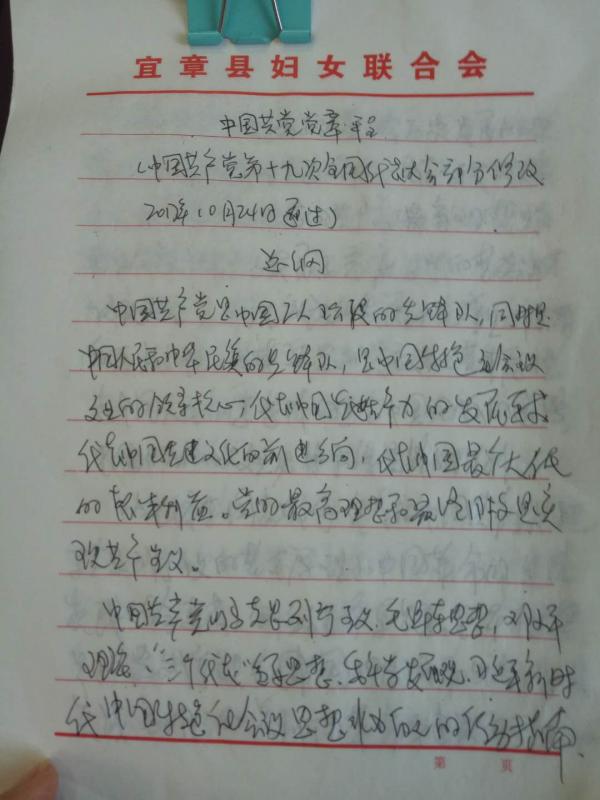 宜章县妇女联合会
中国共党党章程
(中国共产党第十九次全国代表大会部分修改
2017年10月24日通过)
总纲
中国共产党是中国工人阶级的先锋队,同时是
中国人民和中华民族的先锋队,是中国特色社会主义
事业的领导核心,代表中国先进生产力的发展要求
代表中国先进文化的前进方向,代表中国最广大人民
的根本利益。党的最高理想和最终目标是实
现共产主义。
中国共产党以马克思列宁主义、毛泽东思想,邓小平
理论、“三个代表”重要思想、科学发展观、习近平新时
代中国特色社会主义思想作为自己的行动指南。
第 页